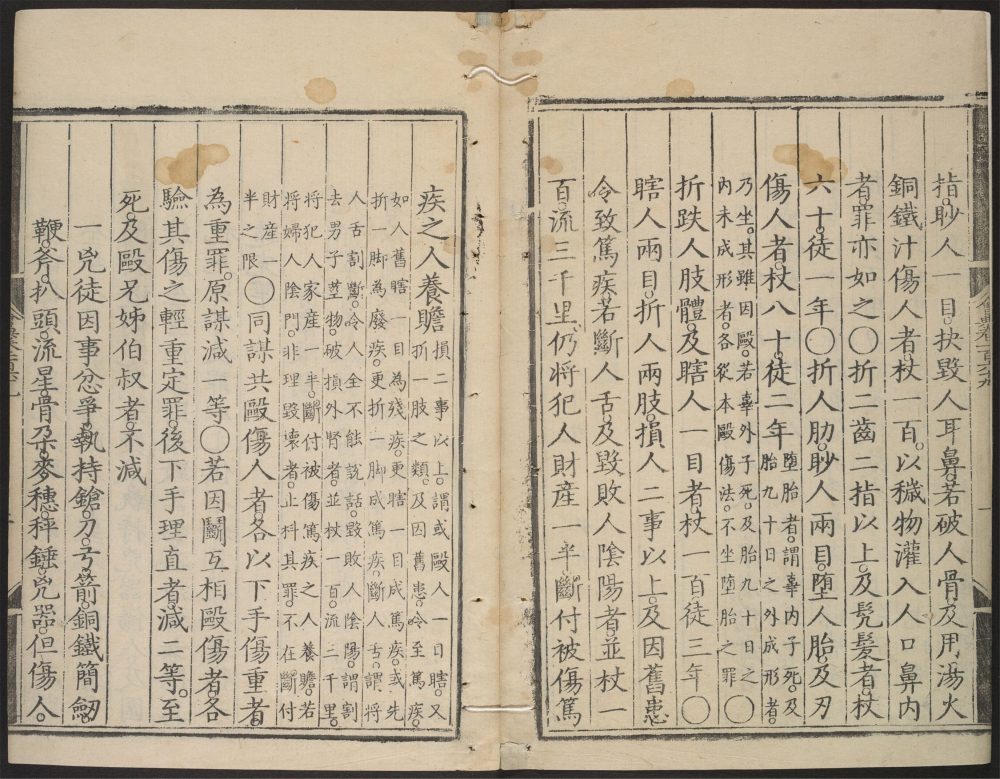 指眇人一目抉毀人耳鼻若破人骨及用湯火
銅鐵汁傷人者杖一百以穢物灌入人口鼻內
者罪亦如之○折二齒二指以上及髡髮者杖
六十徒一年○折人肋眇人兩目墮人胎及刃
傷人者杖八十徒二年墮胎者謂辜內子死及
胎九十日之外成形者
乃坐其雖因毆若辜外子死及胎九十日之
內未成形者各從本毆傷法不坐墮胎之罪○
折跌人肢體及瞎人一目者杖一百徒三年○
瞎人兩目折人兩肢損人二事以上及因舊患
令致篤疾若斷人舌及毀敗人陰陽者並杖一
百流三千里仍將犯人財產一半斷付被傷篤
疾之人養贍損二事以上謂或毆人一目瞎又
折一肢之類及因舊患令至篤疾
如人舊瞎一目為殘疾更瞎一目成篤疾或先
折一脚為廢疾更折一脚成篤疾斷人舌謂將
人舌割斷令人全不能說話毀敗人陰陽謂割
去男子莖物破損外腎者並杖一百流三千里
將犯人家產一半斷付被傷篤疾之人養贍若
將婦人陰門非理毀壞者止科其罪不在斷付
財產一
半之限○同謀共毆傷人者各以下手傷重者
為重罪原謀減一等○若因鬭互相毆傷者各
驗其傷之輕重定罪後下手理直者減二等至
死及毆兄姊伯叔者不減
一兇徒因事忿爭執持鎗刀弓箭銅鐵簡劒
鞭斧扒頭流星骨朶麥穗秤錘兇器但傷人